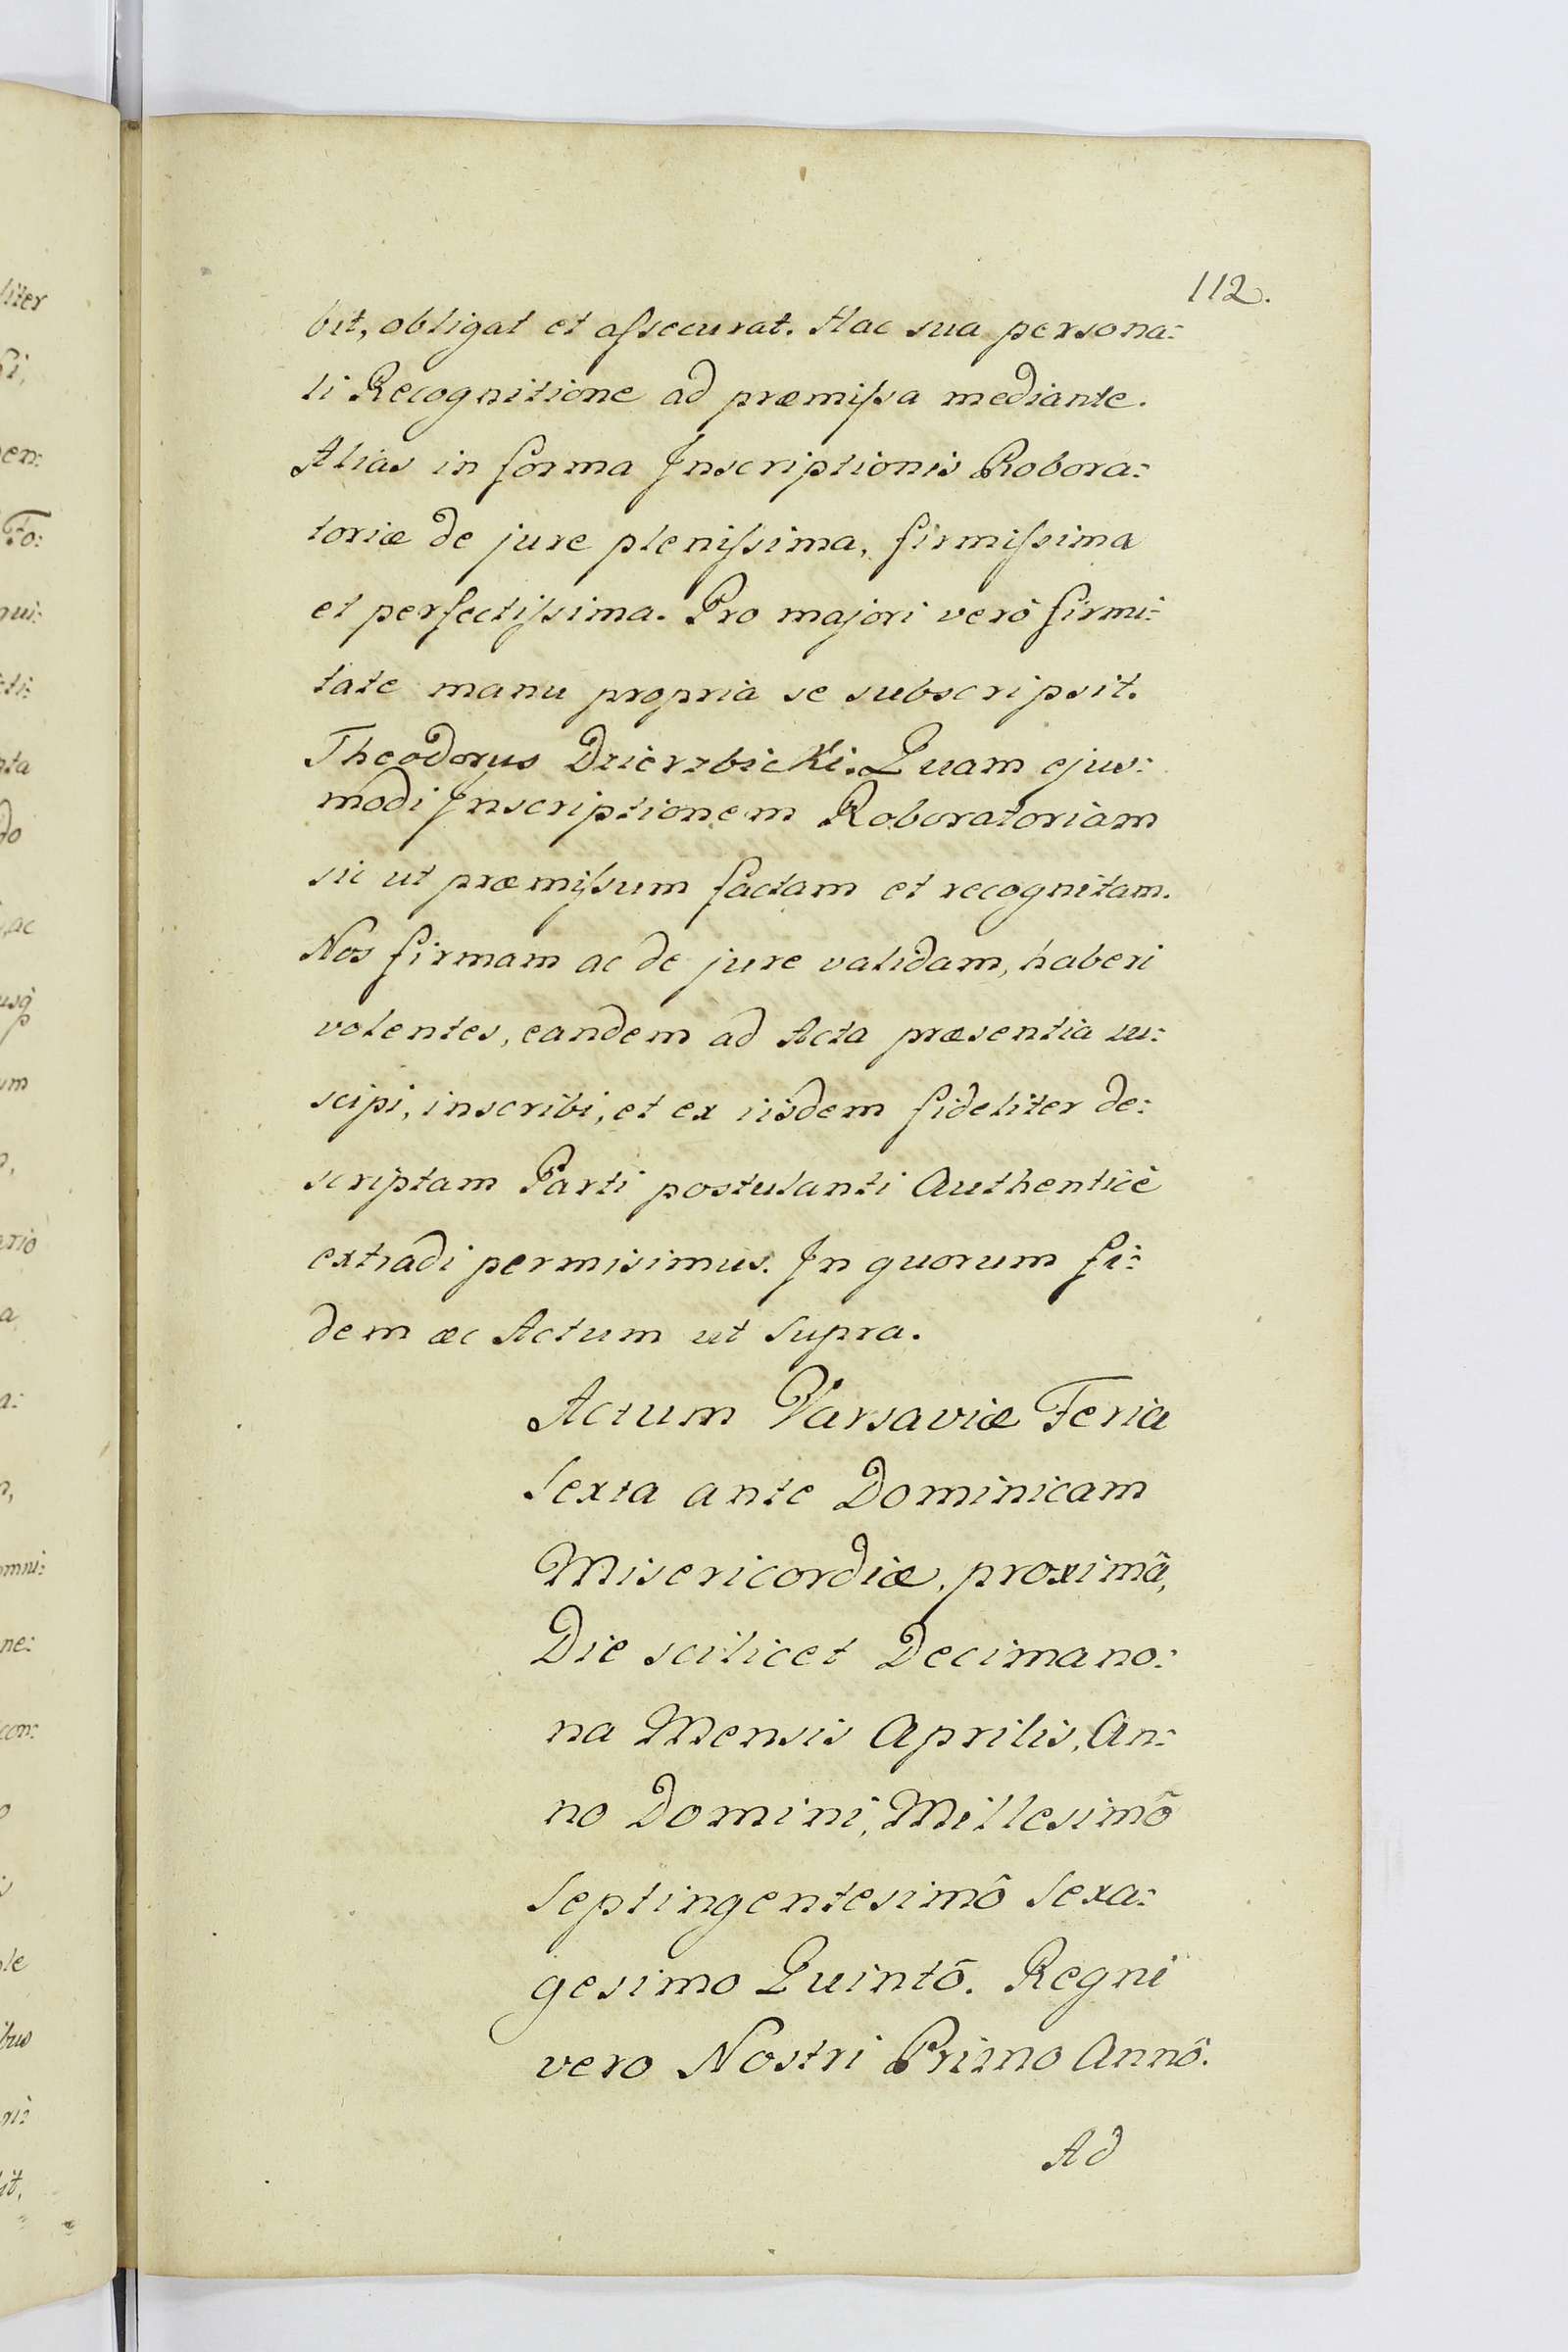 112.
bit, obligat et assecurat. Hac sua persona:
li Recognitione ad præmissa mediante.
Alias in forma Inscriptionis Robora:
toriæ de jure plenissima, firmissima
et perfectissima. Pro majori verò firmi:
tate manu propria se subscripsit.
Theodorus Dzierzbicki. Quam ejus:
modi Inscriptionem Roboratoriam
sic ut præmissum factam et recognitam.
Nos firmam ac de jure validam, haberi
volentes, eandem ad Acta præsentia su:
scipi, inscribi, et ex iisdem fideliter de:
scriptam Parti postulanti Authenticè
extradi permisimus. In quorum fi:
dem æc Actum ut Supra.
Actum Varsaviæ Feria
Sexta ante Dominicam
Misericordiæ, proximâ,
Die scilicet Decimano:
na Mensis Aprilis, An:
no Domini, Millesimô
Septingentesimô Sexa:
gesimo Quintô. Regni
vero Nostri Primo Annô.
Ad
liter
en:
Fo:
qui:
cti:
nta
do
ac
usq
um
erio
a
a:
omni:
ne:
con:
le
ibus
ri:
it,